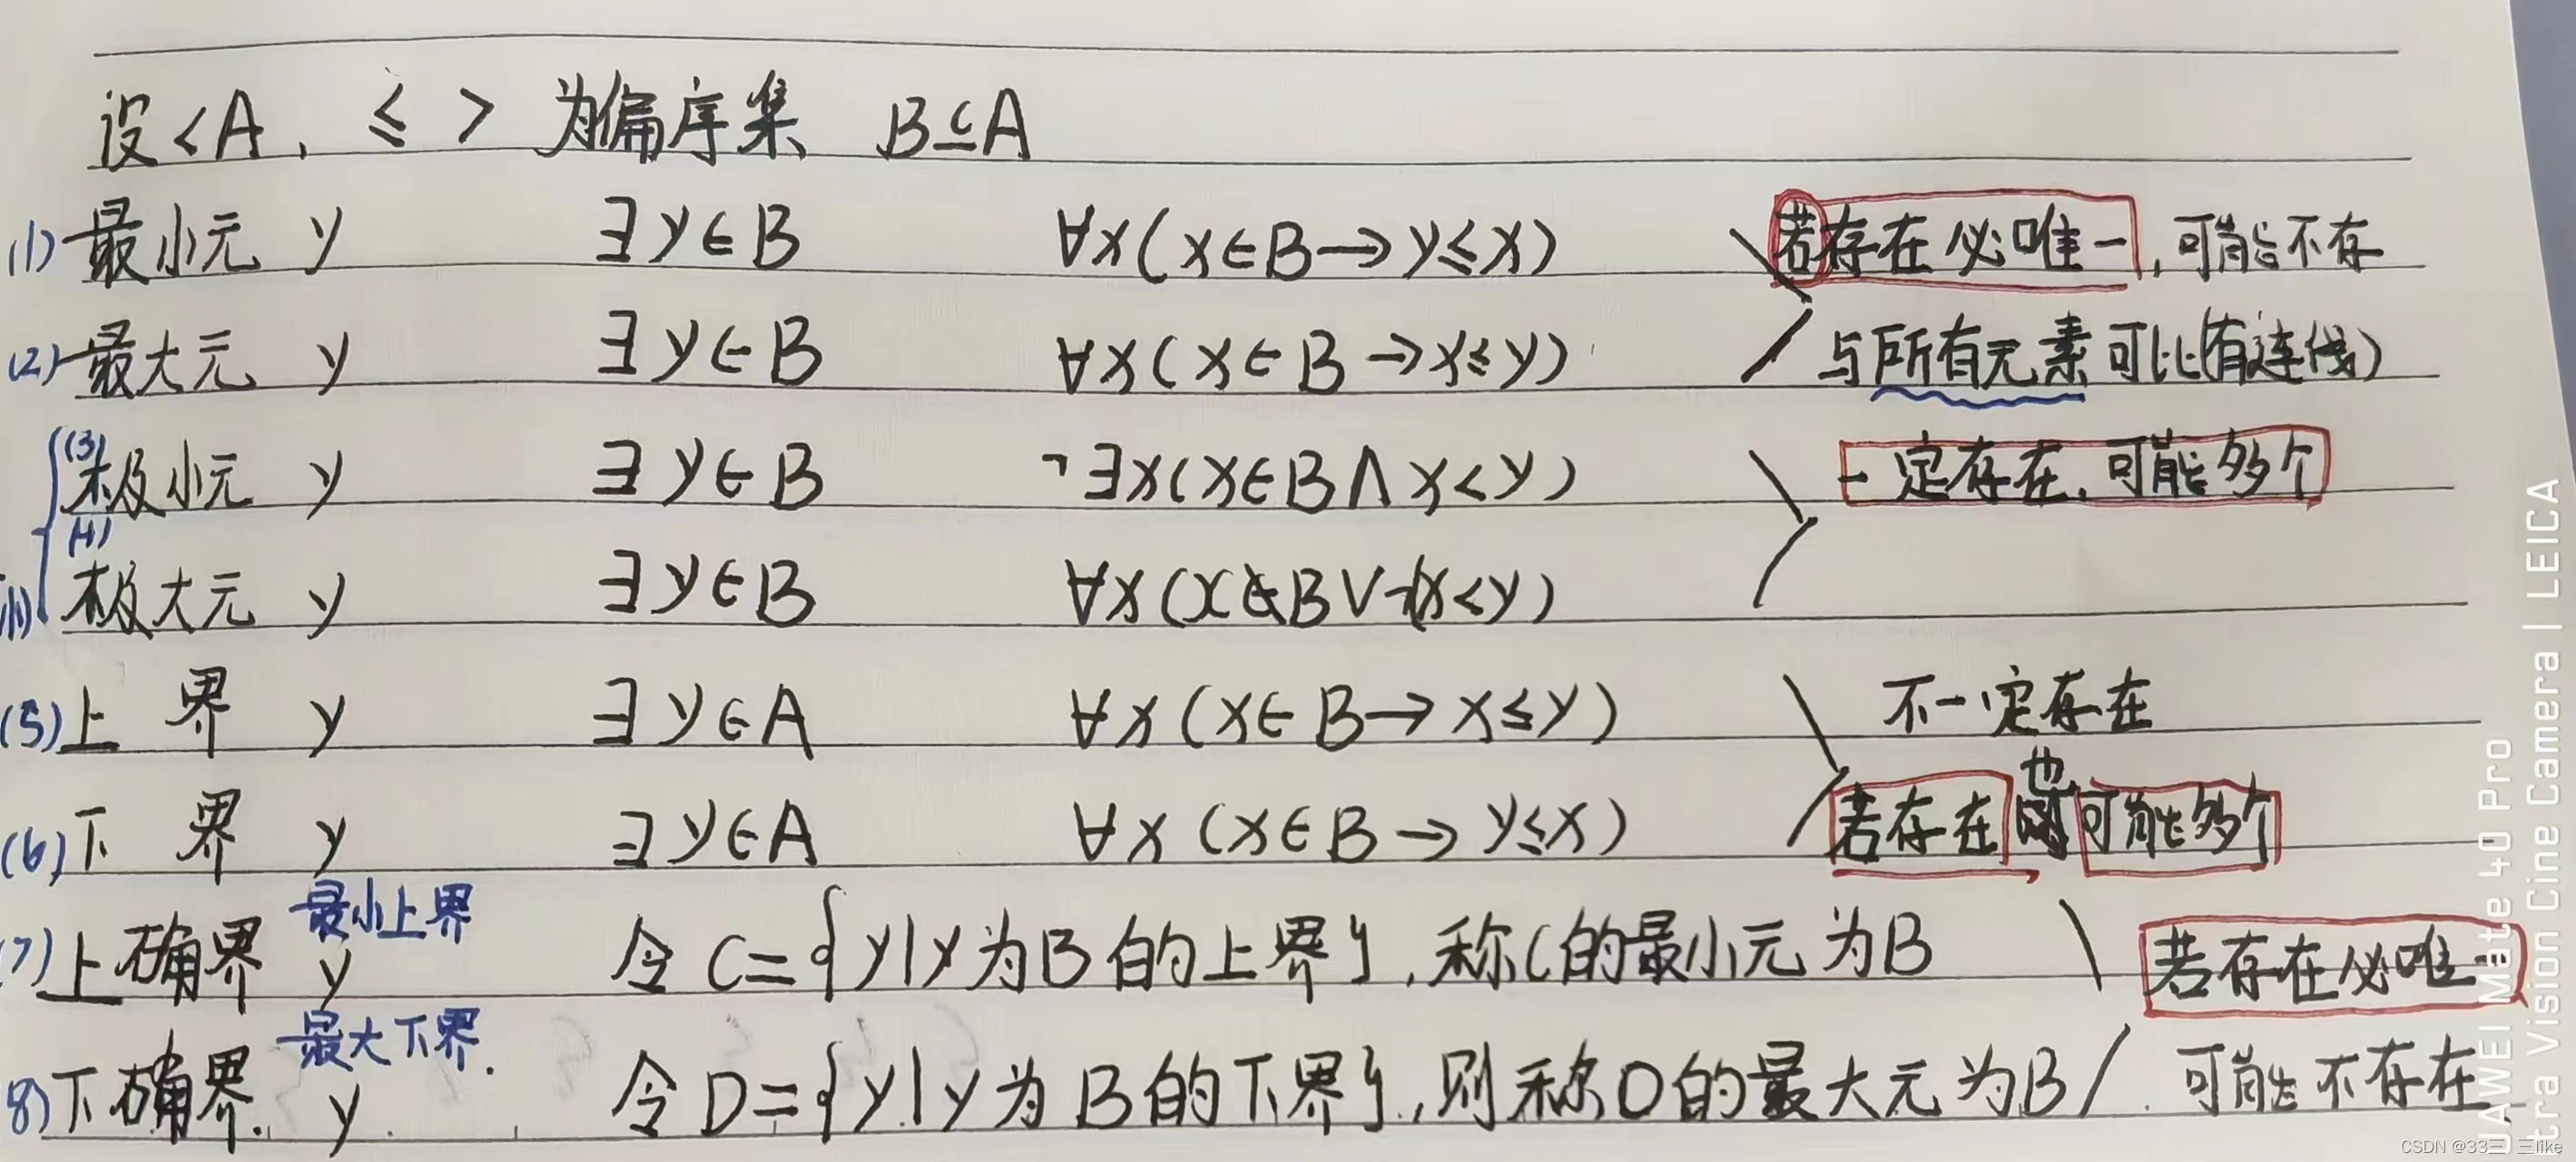 设<A, ≤> 为偏序集 B⊆A
(1) 最小元 y ∃y∈B ∀x(x∈B→y≤x) 若存在必唯一,可能不存
(2) 最大元 y ∃y∈B ∀x(x∈B→x≤y) 与所有元素可比(有连线)
(3) 极小元 y ∃y∈B ¬∃x(x∈B∧x<y) 一定存在,可能多个
(4) 极大元 y ∃y∈B ∀x(x∉B∨¬(x<y)
(5) 上界 y ∃y∈A ∀x(x∈B→x≤y) 不一定存在
(6) 下界 y ∃y∈A ∀x(x∈B→y≤x) 若存在也可能多个
最小上界
7) 上确界 y 令C={y|y为B的上界},称C的最小元为B 若存在必唯一
最大下界.
8) 下确界. y 令D={y|y为B的下界},则称D的最大元为B 可能不存在
AWEI Mate 40 Pro
tra Vision Cine Camera | LEICA
CSDN @33三 三like